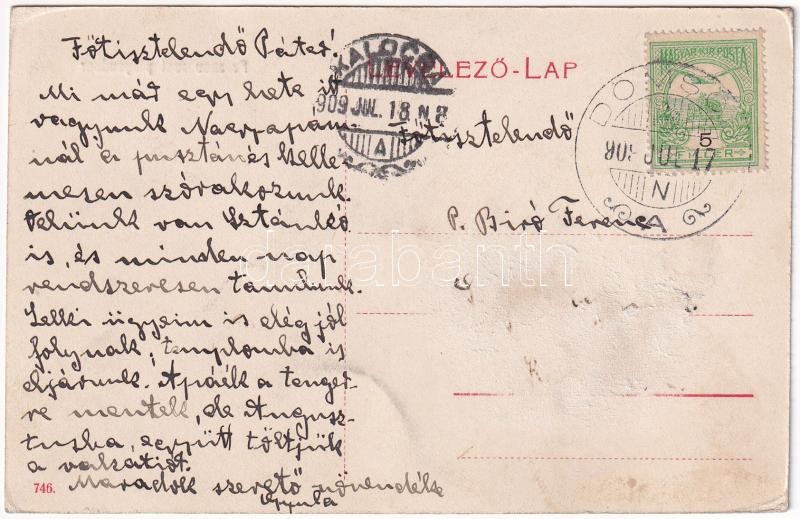 Főtisztelendő Páter!
Mi már egy hete itt
vagyunk Nagyapám-
nál a pusztán és kelle-
mesen szórakozunk.
Velünk van Sztankó
is, és minden nap
rendszeresen tanulunk.
Lelki ügyeim is elég jól
folynak, templomba is
eljárunk. Apáék a tenger-
re mentek, de Augusz-
tusba, együtt töltjük
a vakatiót.
Maradok szerető növendéke
Gyula
746.
LEVELEZŐ-LAP
Főtisztelendő
P. Biró Ferenc
KALOCSA
909 JUL. 18 N 8
A
MAGYAR KIR. POSTA
5
FILLÉR
909 JUL 17
N
A
databanth